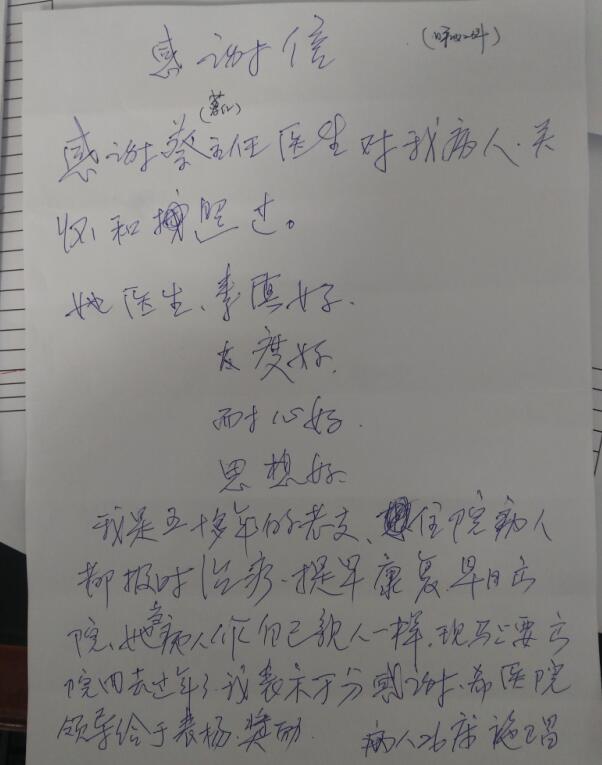 感谢信
感谢蔡主任医生对我病人.关
怀和照过。
她医生、素质好.
态度好.
耐心好.
思想好.
我是五十多年的老支、住院病人
都报时治疗.提早康复.早日亡
院、她当病人作自己親人一样.现马上要亡
院回去过年了.我表示十分感谢.希医院
领导给于表杨.奖励.
病人26床施昌